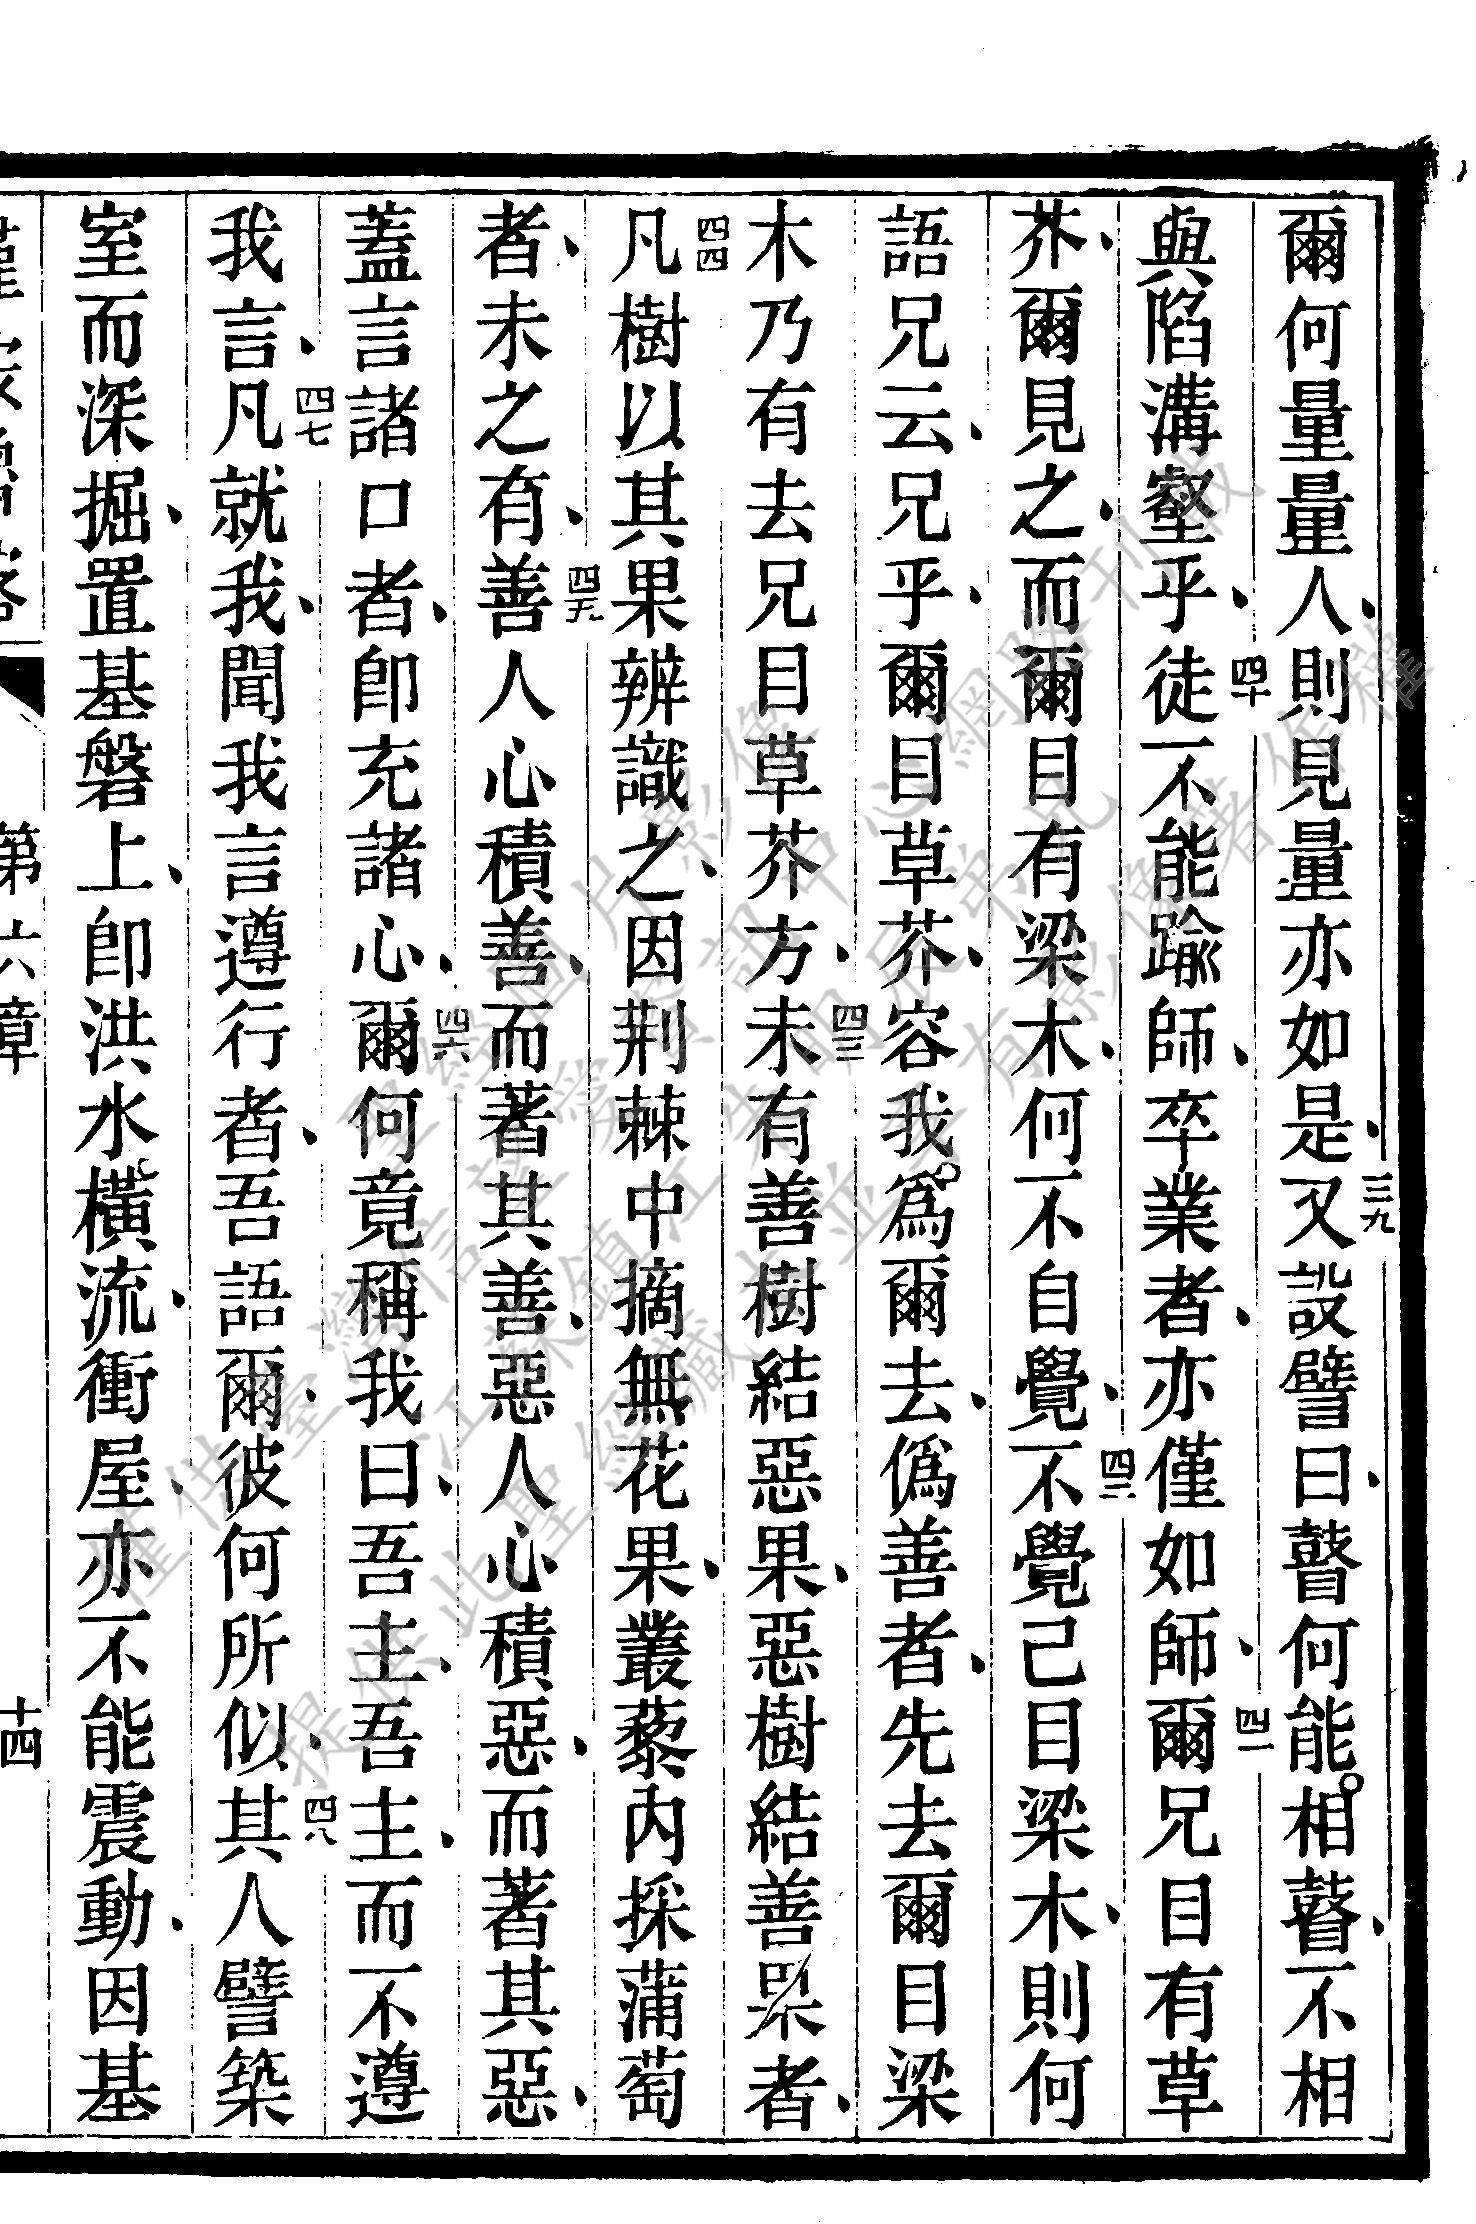 爾何量量人、則見量亦如是、三九又設譬曰、瞽何能相瞽、不相
與陷溝壑乎、四十徒不能踰師、卒業者、亦僅如師、四一爾兄目有草
芥、爾見之、而爾目有梁木、何不自覺、四二不覺己目梁木、則何
語兄云、兄乎、爾目草芥、容我為爾去、偽善者、先去爾目梁
木乃有去兄目草芥方、四三未有善樹結惡果、惡樹結善果者、
四四凡樹以其果辨識之、因荆棘中摘無花果、叢藜內採蒲萄
者、未之有、四五善人心積善、而著其善、惡人心積惡、而著其惡、
蓋言諸口者、卽充諸心、四六爾何竟稱我曰、吾主、吾主、而不遵
我言、四七凡就我、聞我言遵行者、吾語爾、彼何所似、四八其人譬築
室而深掘、置基磐上、卽洪水橫流、衝屋、亦不能震動、因基
第六章
十四